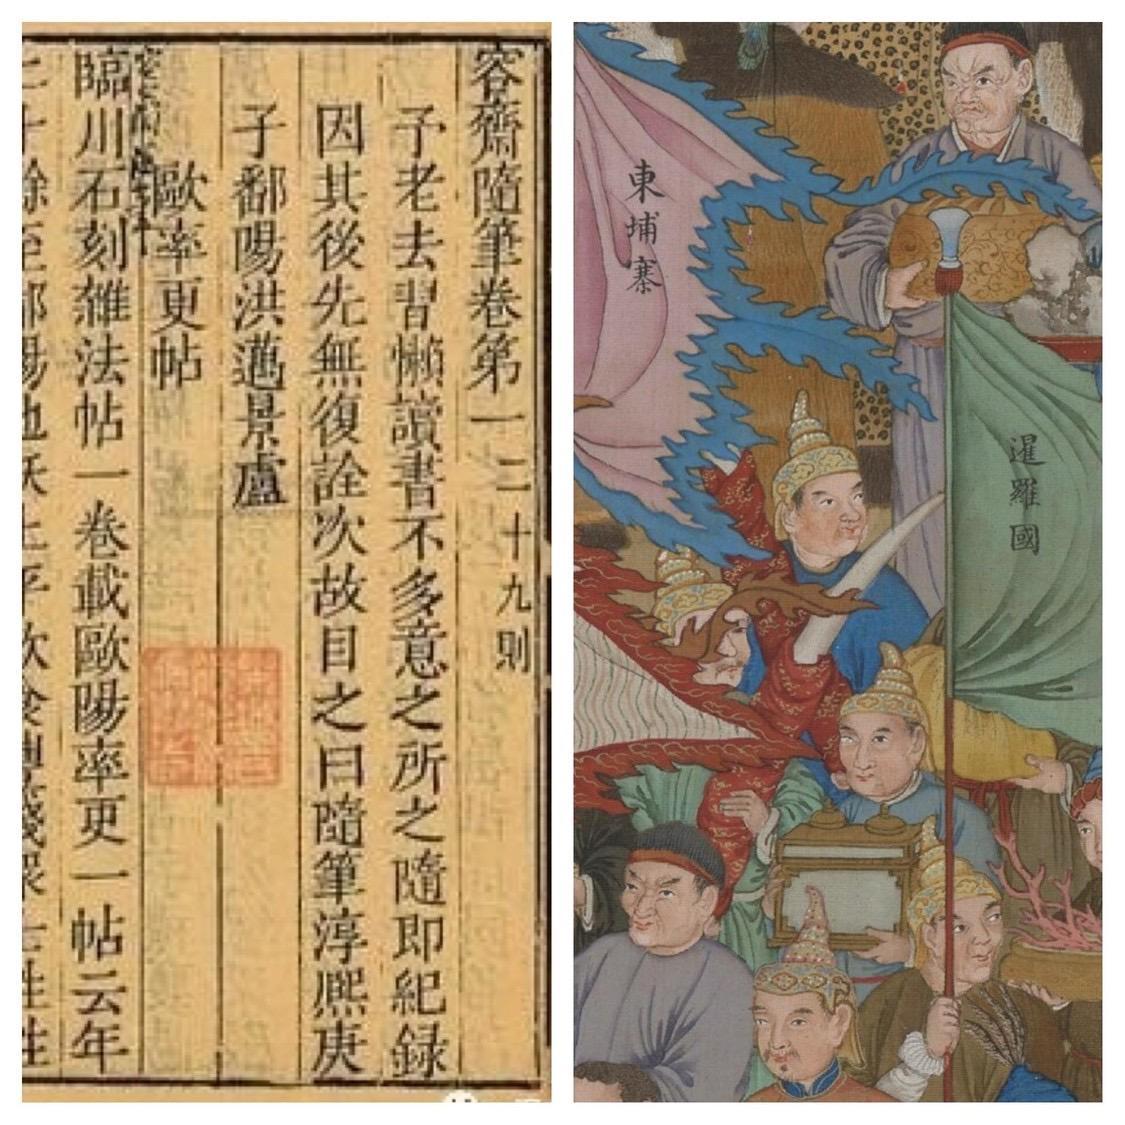 容齋隨筆卷第一 二十九則
予老去習懶讀書不多意之所之隨即紀録
因其後先無復詮次故目之曰隨筆淳熈庚
子鄱陽洪邁景盧
歐率更帖
臨川石刻雜法帖一卷載歐陽率更一帖云年
東埔寨
暹羅國